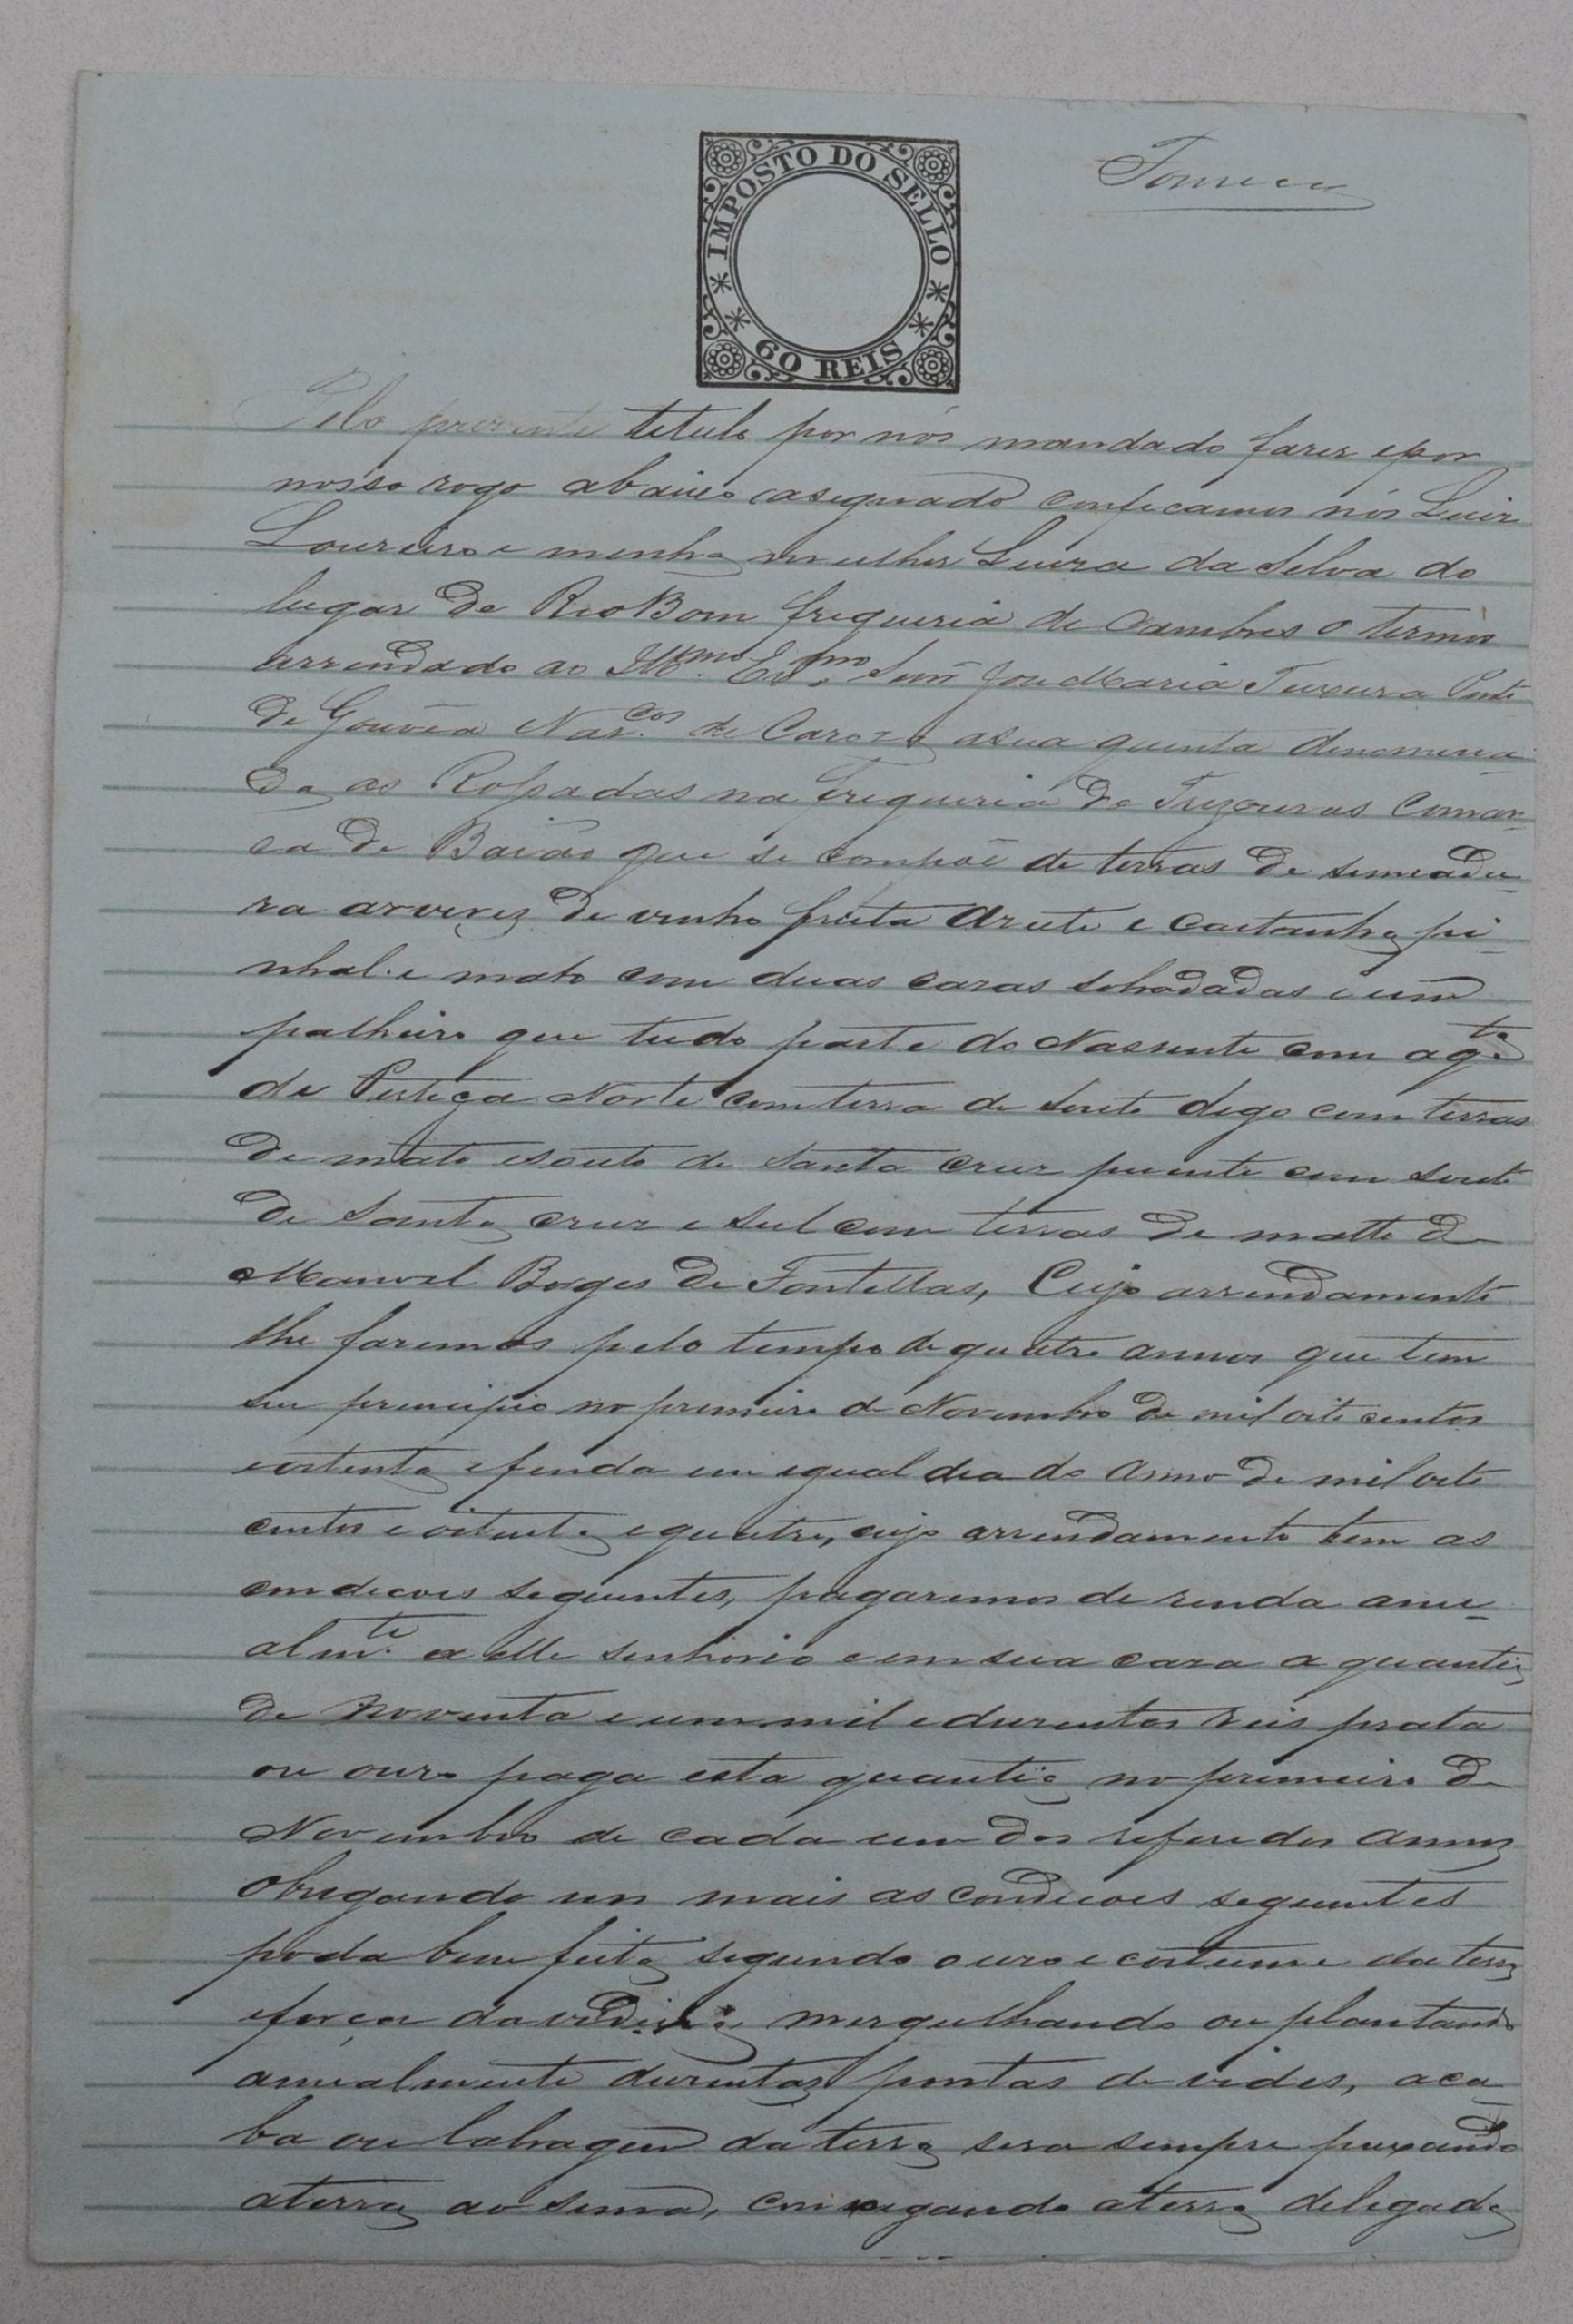 IMPOSTO DO SELLO
60 REIS
Pelo prezente titulo por nós mandado fazer e por
nosso rogo abaixo asignado conficamos nós Luiz
Loureiro e minha mulher Luiza da Selva do
lugar de Rio Bom freguezia de Cambres o termos
arrendado ao Illmo. Exmo. Senr José Maria Teixeira Pinto
de Gouvêa de a sua quinta denomina
da as na freguezia de Trezouras Comar-
ca de Baião que se compõe de terras de semeadu-
ra arvores de vinho fruta Azeite e Castanha, pi-
nhal e mato com duas cazas sobradadas e um
palheiro que tudo parte do Nascente com
de Norte com terra de souto digo com terras
de mato e souto de Santa Cruz puente com souto
de Santa Cruz e sul com terras de matto de
Manoel Borges de Fontellas, Cujo arrendamento
lhe faremos pelo tempo de quatro annos que tem
seu principio no primeiro de Novembro de mil oito centos
e oitenta e finda em egual dia do Anno de mil oito
centos e oitenta e quatro, cujo arrendamento tem as
condecoes seguintes, pagaremos de renda anu-
almte. a elle senhorio e em sua caza a quantia
de Noventa e um mil e duzentos reis prata
ou ouro paga esta quantia no primeiro de
Novembro de cada um dos referedos Annos
obregando nos mais as condicoes seguintes
poda bem feita segundo o uzo e costume da terra
e força da mergulhando ou plantando
anualmente duzentas pontas de vides, a ca-
ba ou labragem da terra sera sempre puxando
a terra ao sima, a terra delegada